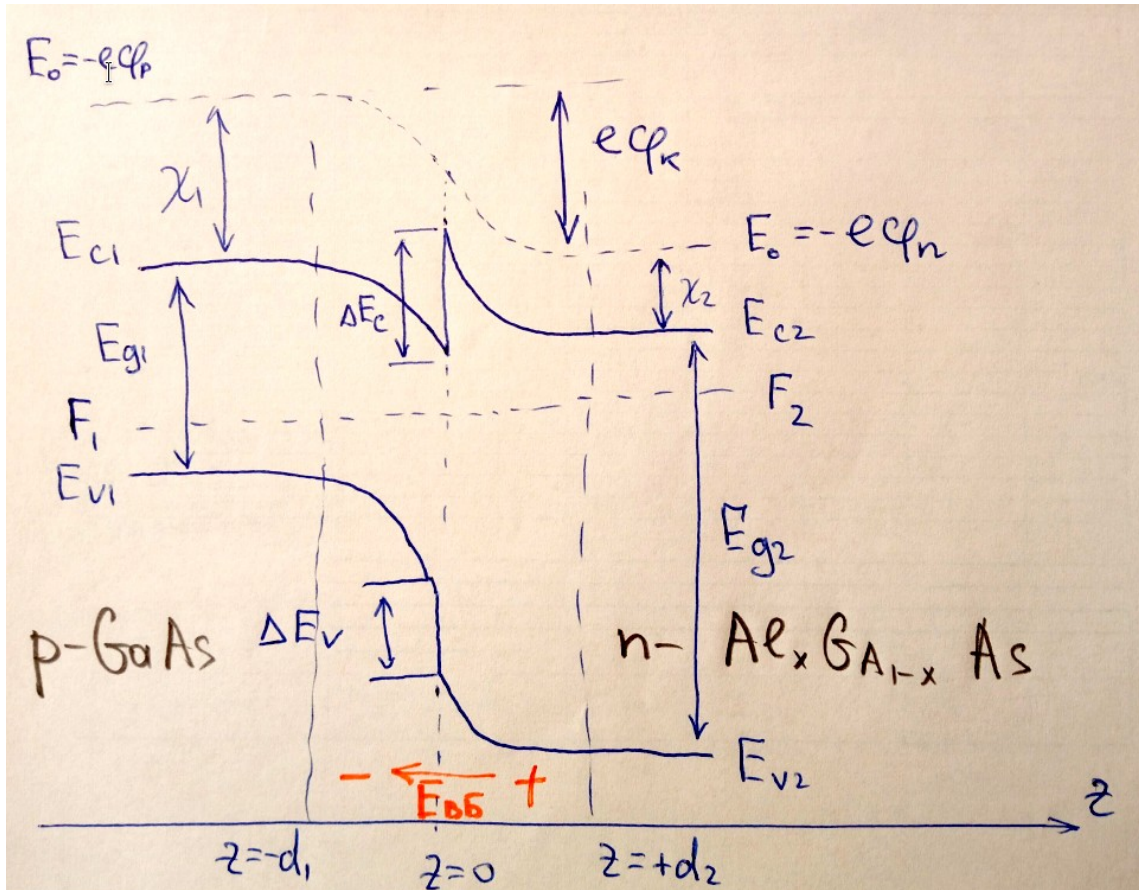 E₀=-eφₚ
eφₖ
χ₁
E_C1
E₀=-eφₙ
ΔE_C
χ₂
E_C2
E_g1
F₁
F₂
E_V1
E_g2
p-GaAs
ΔE_V
n- AlₓGA₁₋ₓ As
- +
E_ВБ
E_V2
z
z=-d₁
z=0
z=+d₂